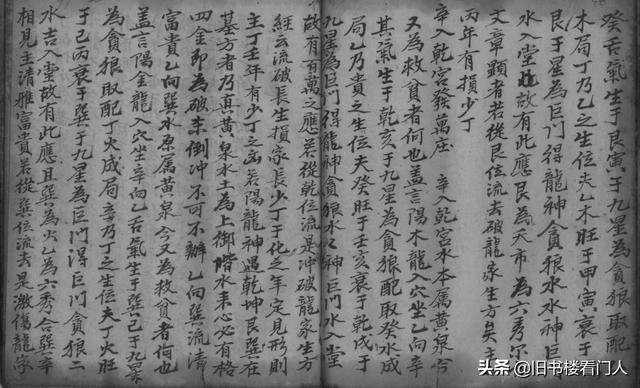 癸舌氣生于艮寅于九星為貪狼取配
木局丁乃乙之生位夫乙木旺于甲寅衰于
艮于星為巨門得龍神貪狼水水神巨
水入堂故有此應艮為天市為六秀尔
文章顯者若從艮位流去破龍家生方矣
丙年有損少丁
辛入乾宮發萬庄 辛入乾宮水本屬黃泉今
又為救貧者何也蓋言陽木龍入穴坐乙向辛
其氣生于乾亥于九星為貪狼配取癸水成
局乙乃貴之生位夫癸旺于壬亥衰于乾戌于
九星為巨門得龍神貪狼水々神巨門水入堂
故有百萬之應若從乾位流是冲破龍家生方
經云流破長生損家長少丁于化之年定見形則
主丁壬年有少丁之凶若陽龍神遇乾坤艮巽在
墓方者乃真黃泉水土為上御堦水耒心必有格
四金即為破倒冲不可不辦乙向巽流清
富貴乙向巽水原屬黃泉今又為救貧者何也
盖言陽金龍入穴坐辛向乙舌氣生于巽巳于九星
為貪狼取配丁火成局辛乃丁之生位夫丁火旺
于己丙衰于巽于九星為巨門得巨門貪狼二
水吉入堂故有此應且巽為火乙為六秀合巽辛
相見主清雅富貴若從巽位流去是激傷龍家
头条 @旧书楼看门人